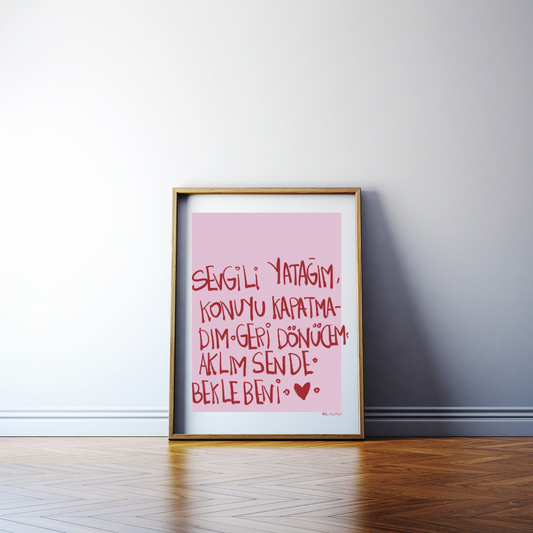 SEVGİLİ YATAĞIM,
KONUYU KAPATMA-
DIM•GERİ DÖNÜCEM•
AKLIM SENDE•
BEKLE BENİ•♥